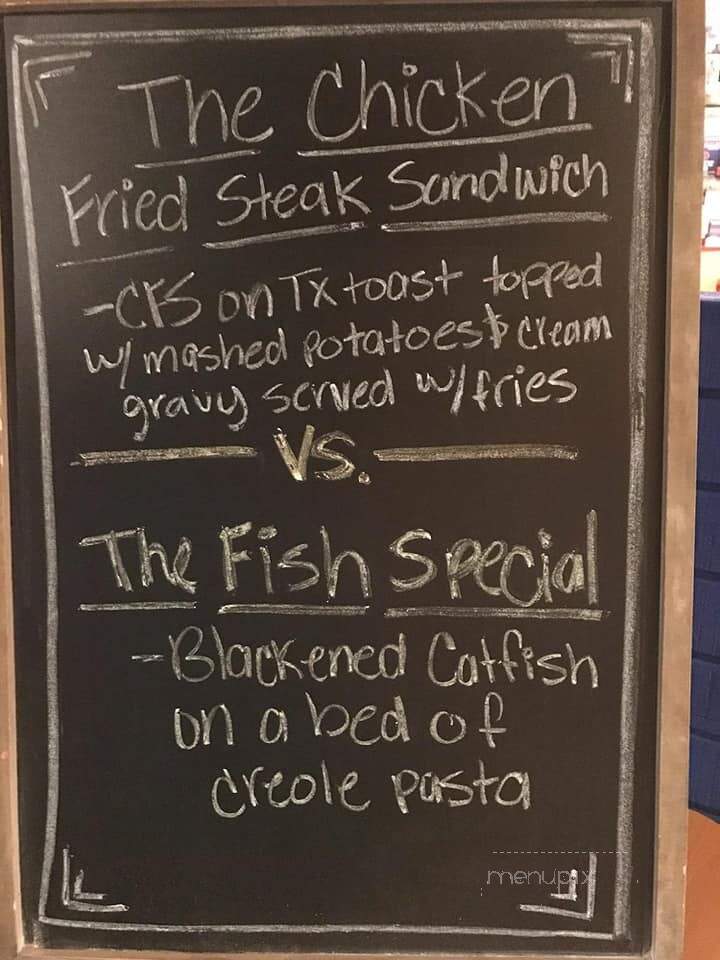 The Chicken
Fried Steak Sandwich
-CFS on Tx toast topped
w/ mashed potatoes & cream
gravy served w/ fries
VS.
The Fish Special
-Blackened Catfish
on a bed of
creole pasta
menupix